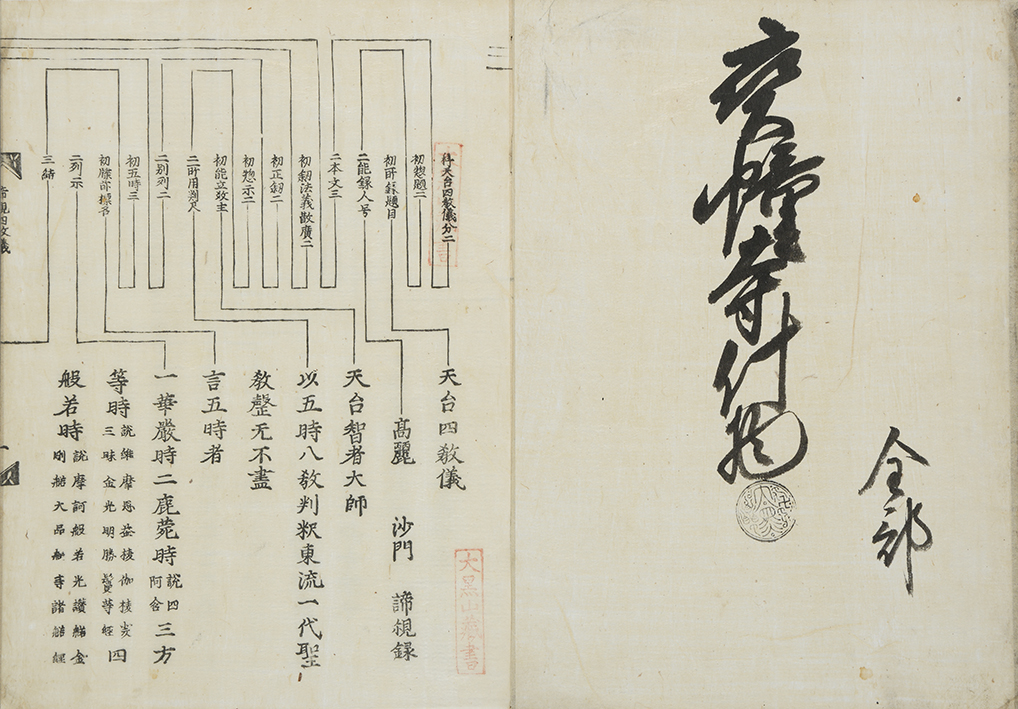 寶幢寺什物
全部
三
科天台四教儀分二
初惣題二
初所錄題目
二能錄人号
二本文三
初判法義散廣二
初正判二
初惣示二
初能立教主
二所用判尺
二別列二
初五時三
初牒前標名
二列示
三結
天台四教儀
高麗 沙門 諦観録
天台智者大師
以五時八教判釈東流一代聖
教罄无不盡
言五時者
一華嚴時二鹿菀時 說四阿含 三方
等時 說維摩思益楞伽楞嚴三昧金光明勝鬘等經 四
般若時 說摩訶般若光讃般若金剛般若大品般若等諸般若經
大黒山蔵書